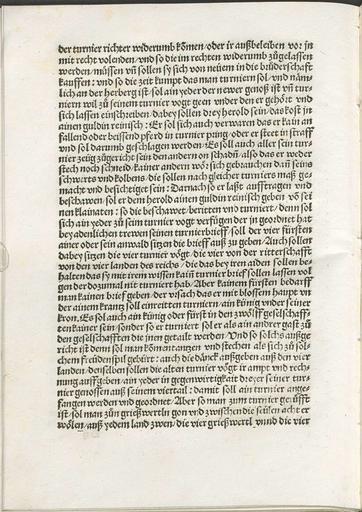 der turnier richter widerumb kömen/oder ir außbeleiben vor jn
mit recht volenden/und so die im rechten widerumb zůgelassen
werden/müssen vñ sollen sy sich von neüem in die brüderschaft
kauffen: und so die zeit kumpt das man turniern sol/und näm-
lich an der herberg ist/sol ain yeder der newer genoß ist vñ tur-
niern wil zů seinem turnier vogt geen under den er gehört und
sich lassen einschreiben/dabey sollen drey herold sein/das kost jn
ainen guldin reinisch/: Es sol sich auch verwaren das er kain an
fallend oder beissend pferd in turnier pring/oder er steet in straff
und sol darumb geschlagen werden. Es soll auch aller sein tur-
nier zeüg zůgericht sein den andern on schaden/also das er weder
stech noch schneid/kainer andern wör sich gebrauchen dañ seins
schwerts und kolbens/die sollen nach gleicher turniers maß ge-
macht und besichtiget sein: Darnach so er laßt aufftragen und
beschawen/sol er dem herold ainen guldin reinisch geben võ sei
nen klainaten: so die beschawet/berütten und turniert/denn sol
sich ain yeder zů seim turnier vogt verfügen der jn geordnet hat
bey adenlichen trewen seinen turnierbrieff/soll der vier fürsten
ainer oder sein anwald sitzen die brieff auß zů geben/Auch sollen
dabey sitzen die vier turnier vögt/die vier von der ritterschafft
von den vier landen des reichs/die das bey iren aiden sollen be-
halten das sy mit irem wissen kaiñ turnier brief sollen lassen vol
gen der dozumal nit turniert hab/Aber kainem fürsten bedarff
man kainen brief geben/der võsach das er mit blossem haupt vñ
der ainem krantz soll einreitten turniern/ain künig vnder seiner
kron. Es sol auch ain künig oder fürst in den zwölff geselschaff-
ten kainer sein/sonder so er turniert sol er als ain andrer gast zů
den geselschafften die jnen getailt werden. Und so solchs außge
richt ist denn sol man komen tantzen und stechen als sich zů sol-
chem freüdenspil gebürt: auch die dänck außgeben auß den vier
landen/denselben sollen die alten turnier vögt ir ampt und rech-
nung auffgeben/ain yeder in gegenwirtigkait dreyer seiner tur-
nier genossen auß seinem viertail: damit soll ain turnier ange-
fangen werden und geordnet/Aber so man zum turnier gerüfft
ist/sol man zůn grießwertln gon und zwischen die seülen acht er
wölen/auß yedem land zwen/die vier grießwertl/vnnd die vier